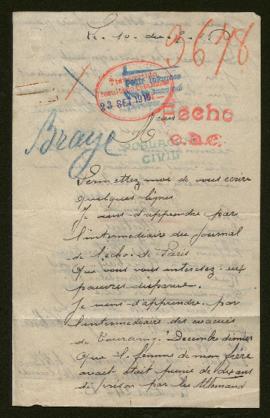 3678
23 SEP 1916
Hecho
c.a.c.
Braye
POBLACION
CIVIL
Permettez moi de vous écrire
quelques lignes
Je viens d'apprendre par
l'intermediaire du journal
de l'echo de Paris
que vous vous interessez aux
pauvres disparus.
Je viens d'apprendre par
l'intermediaire des evacués
de Decembre dernier
que la femme de mon frère
avait était punie de dix ans
de prison par les Allemand